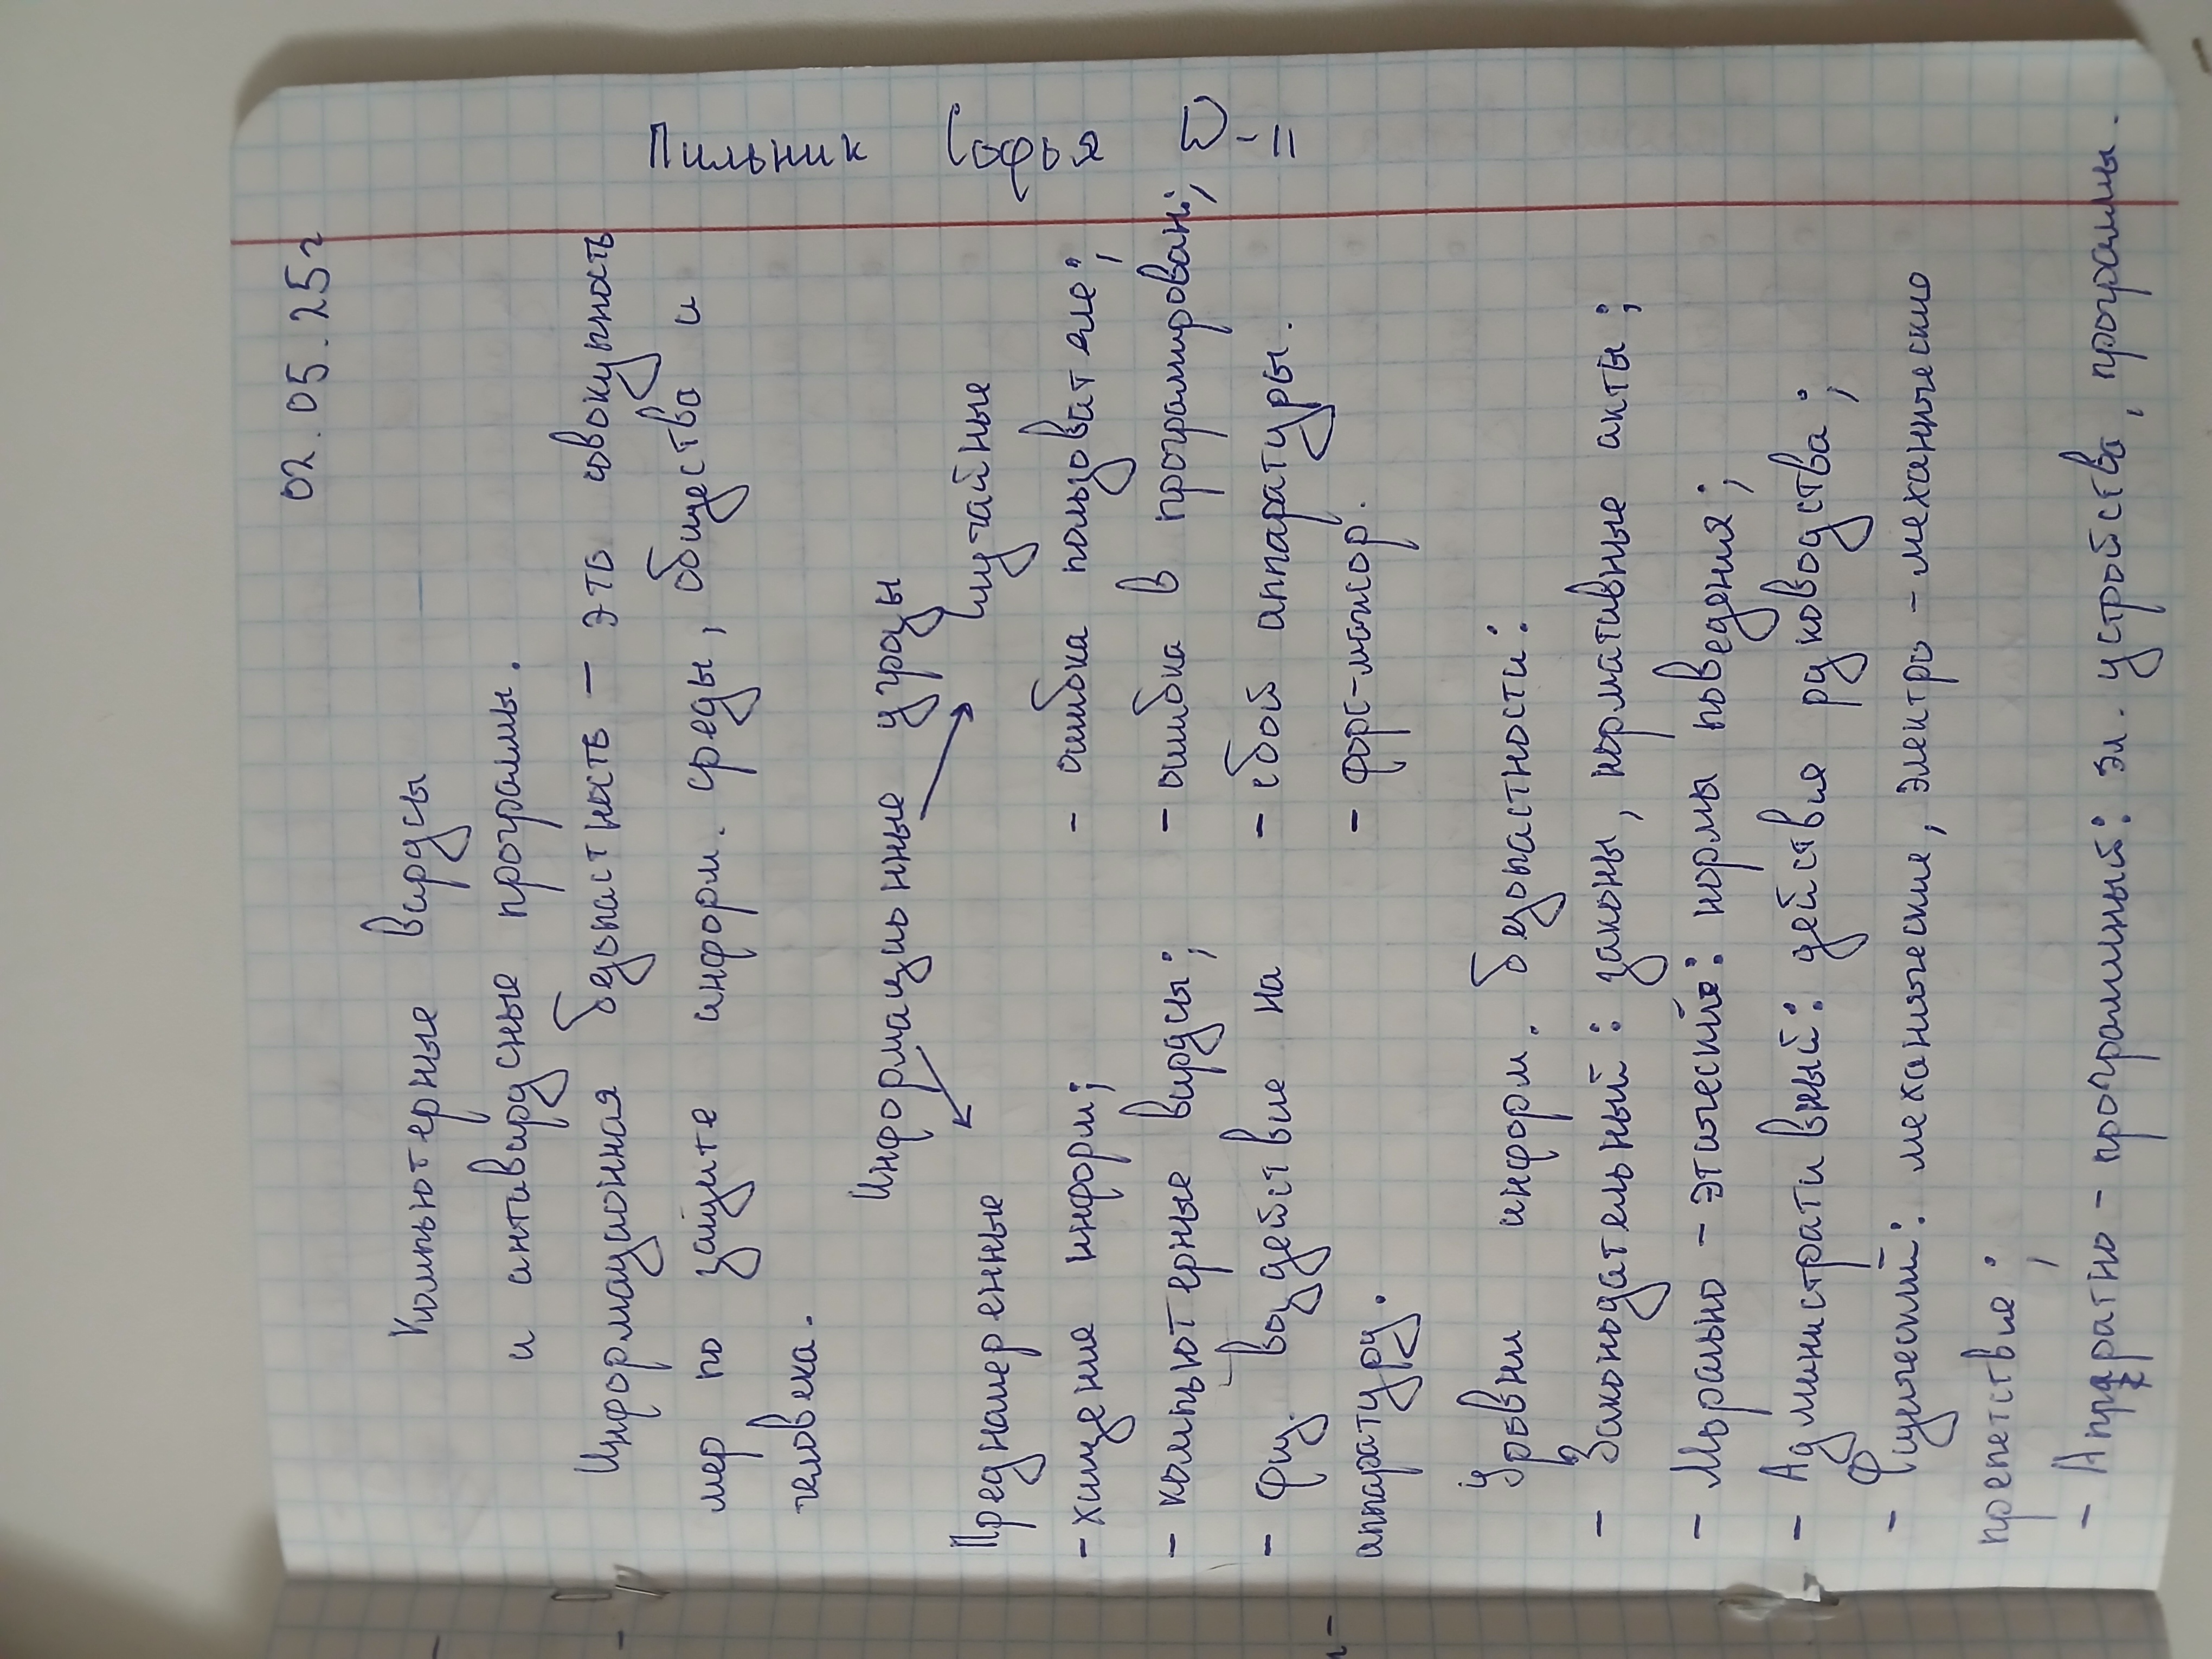 02.05.25г
Компьютерные вирусы
и антивирусные програмы.
Информационная безопастность - это совокупность
мер по защите информ. среды, общества и
человека.
Информационные угрозы
Преднамеренные
Случайные
- хищение информ;
- компьютерные вирусы;
- физ. воздействие на
аппаратуру.
- ошибка пользователе;
- ошибка в програмировани;
- сбой аппаратуры.
- форс-мажор.
Уровни информ. безопастности:
- Законодательный: законы, нормативные акты;
- Морально - этический: нормы поведения;
- Административный: действия руководства;
- Физический: механические, электро - механическию
препетствие;
- Аппаратно - програмный: эл. устройства, програмы.
Пильник Софья